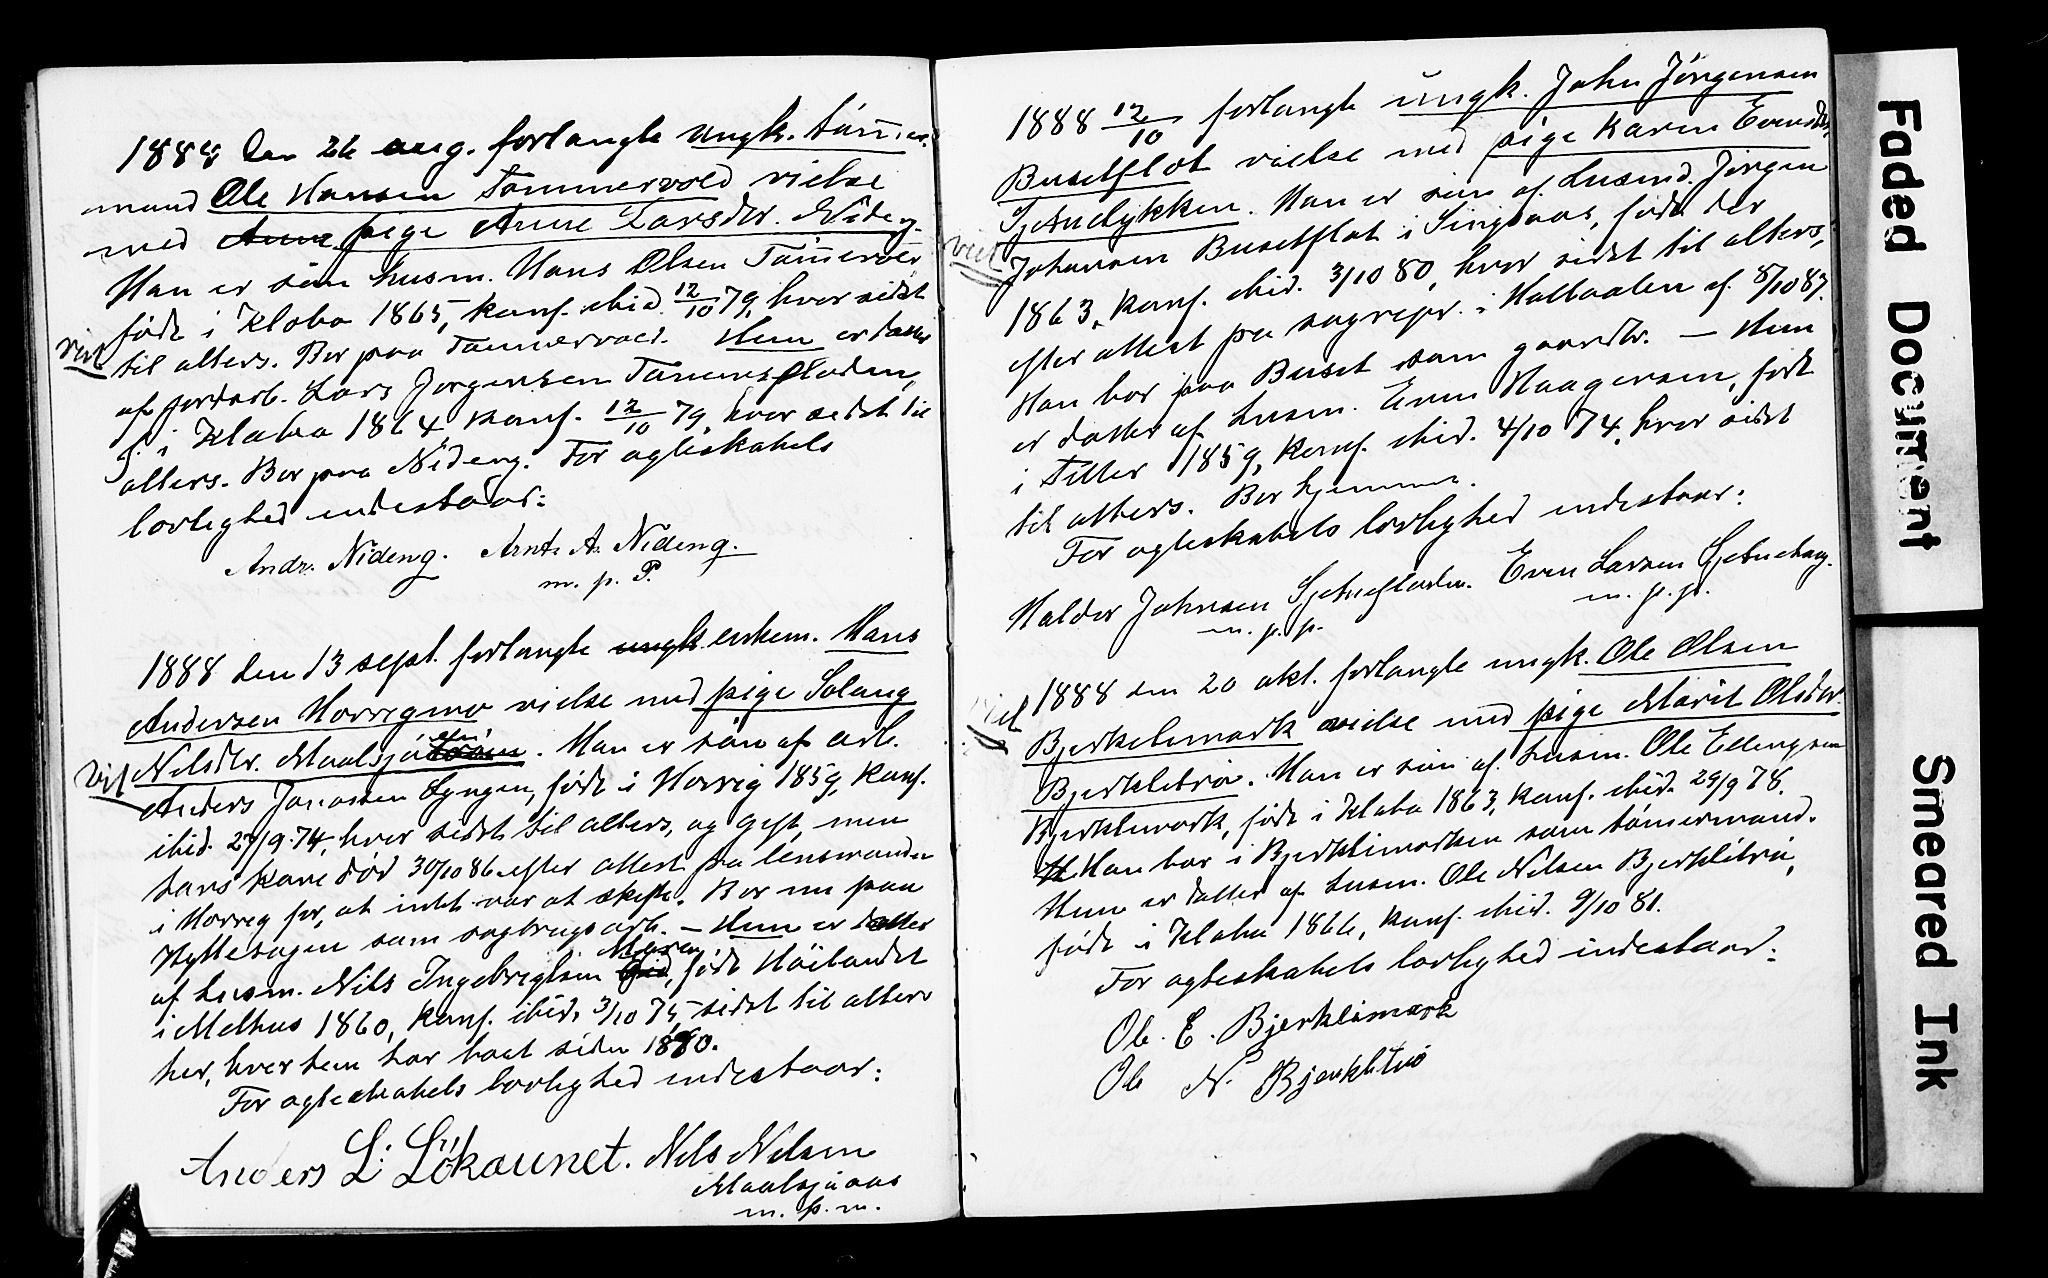 1888 den 26 aug. forlangte ungk. tömmer-
mand Ole Hansen Tømmervold vielse
med Anne pige Anne Larsdtr. Nideng.
Han er sön husm. Hans Olsen Tömmervold
född i Klæbo 1865, konf. ibid. 12/10 79, hvor sidst
viet til alters. Bor paa Tømmervold. Hun er datter
af jordarb. Lars Jørgensen Tanemsfladen,
f. i Klæbo 1864 konf. 12/10 79, hvor sidst til
alters. Bor paa Nideng. For ægteskabets
lovlighed indestaar:
Andr. Nideng. Arnt A. Nideng.
m. p. P.
1888 den 13 sept. forlangte ungk. enkem. Hans
Andersen Horrigmo vielse med pige Solaug
Nilsdtr. Maalsjöåsen. Han er sön af arb.
viet Anders Jonassen Lyngen, född i Horrig 1859, konf.
ibid. 27/9 74, hvor sidst til alters, og gift, men
hans kone död 30/10 86 efter attest fra lensmanden
i Horrig for, at intet var at skifte. Bor nu paa
Hyttesagen som sagbrugsarb. – Hun er datter
af husm. Nils Ingebrigtsen Moren, född Höilandet
i Melhus 1860, konf. ibid. 3/10 75, sidst til alters
her, hvor hun har boet siden 1880.
For ægteskabets lovlighed indestaar:
Anders L: Lökaunet. Nils Nilsen
Maalsjöaas
m. p. m.
1888 12/10 forlangte ungk. John Jörgensen
Busetflot vielse med pige Karen Evensdtr.
Sjetnelykken. Han er sön af husmd. Jörgen
viet Johansen Busetflot i Singsaas, född der
1863, konf. ibid. 3/10 80, hvor sidst til alters,
efter attest fra sogнepr. i Holtaalen af 8/10 87.
Han bor paa Buset som gaardbr. – Hun
er datter af husm. Even Haagensen, född
i Tiller 1859, konf. ibid. 4/10 74, hvor sidst
til alters. Bor hjemme.
For ægteskabets lovlighed indestaar:
Haldor Johnsen Sjetnefladen. Even Larsen Sjetnehaug.
m. p. p. m. p. p.
viet 1888 den 20 okt. forlangte ungk. Ole Olsen
Bjerklimark vielse med pige Marit Olsdtr.
Bjerklitrö. Han er sön af husm. Ole Ellingsen
Bjerklimark, född i Klæbo 1863, konf. ibid. 29/9 78.
Han bor i Bjerklimarken som tömmermand.
Hun er datter af husm. Ole Nilsen Bjerklitrö,
född i Klæbo 1866, konf. ibid. 9/10 81.
For ægteskabets lovlighed indestaar:
Ole. E. Bjerklimark
Ole N. Bjerklitrö
Faded Document
Smeared Ink